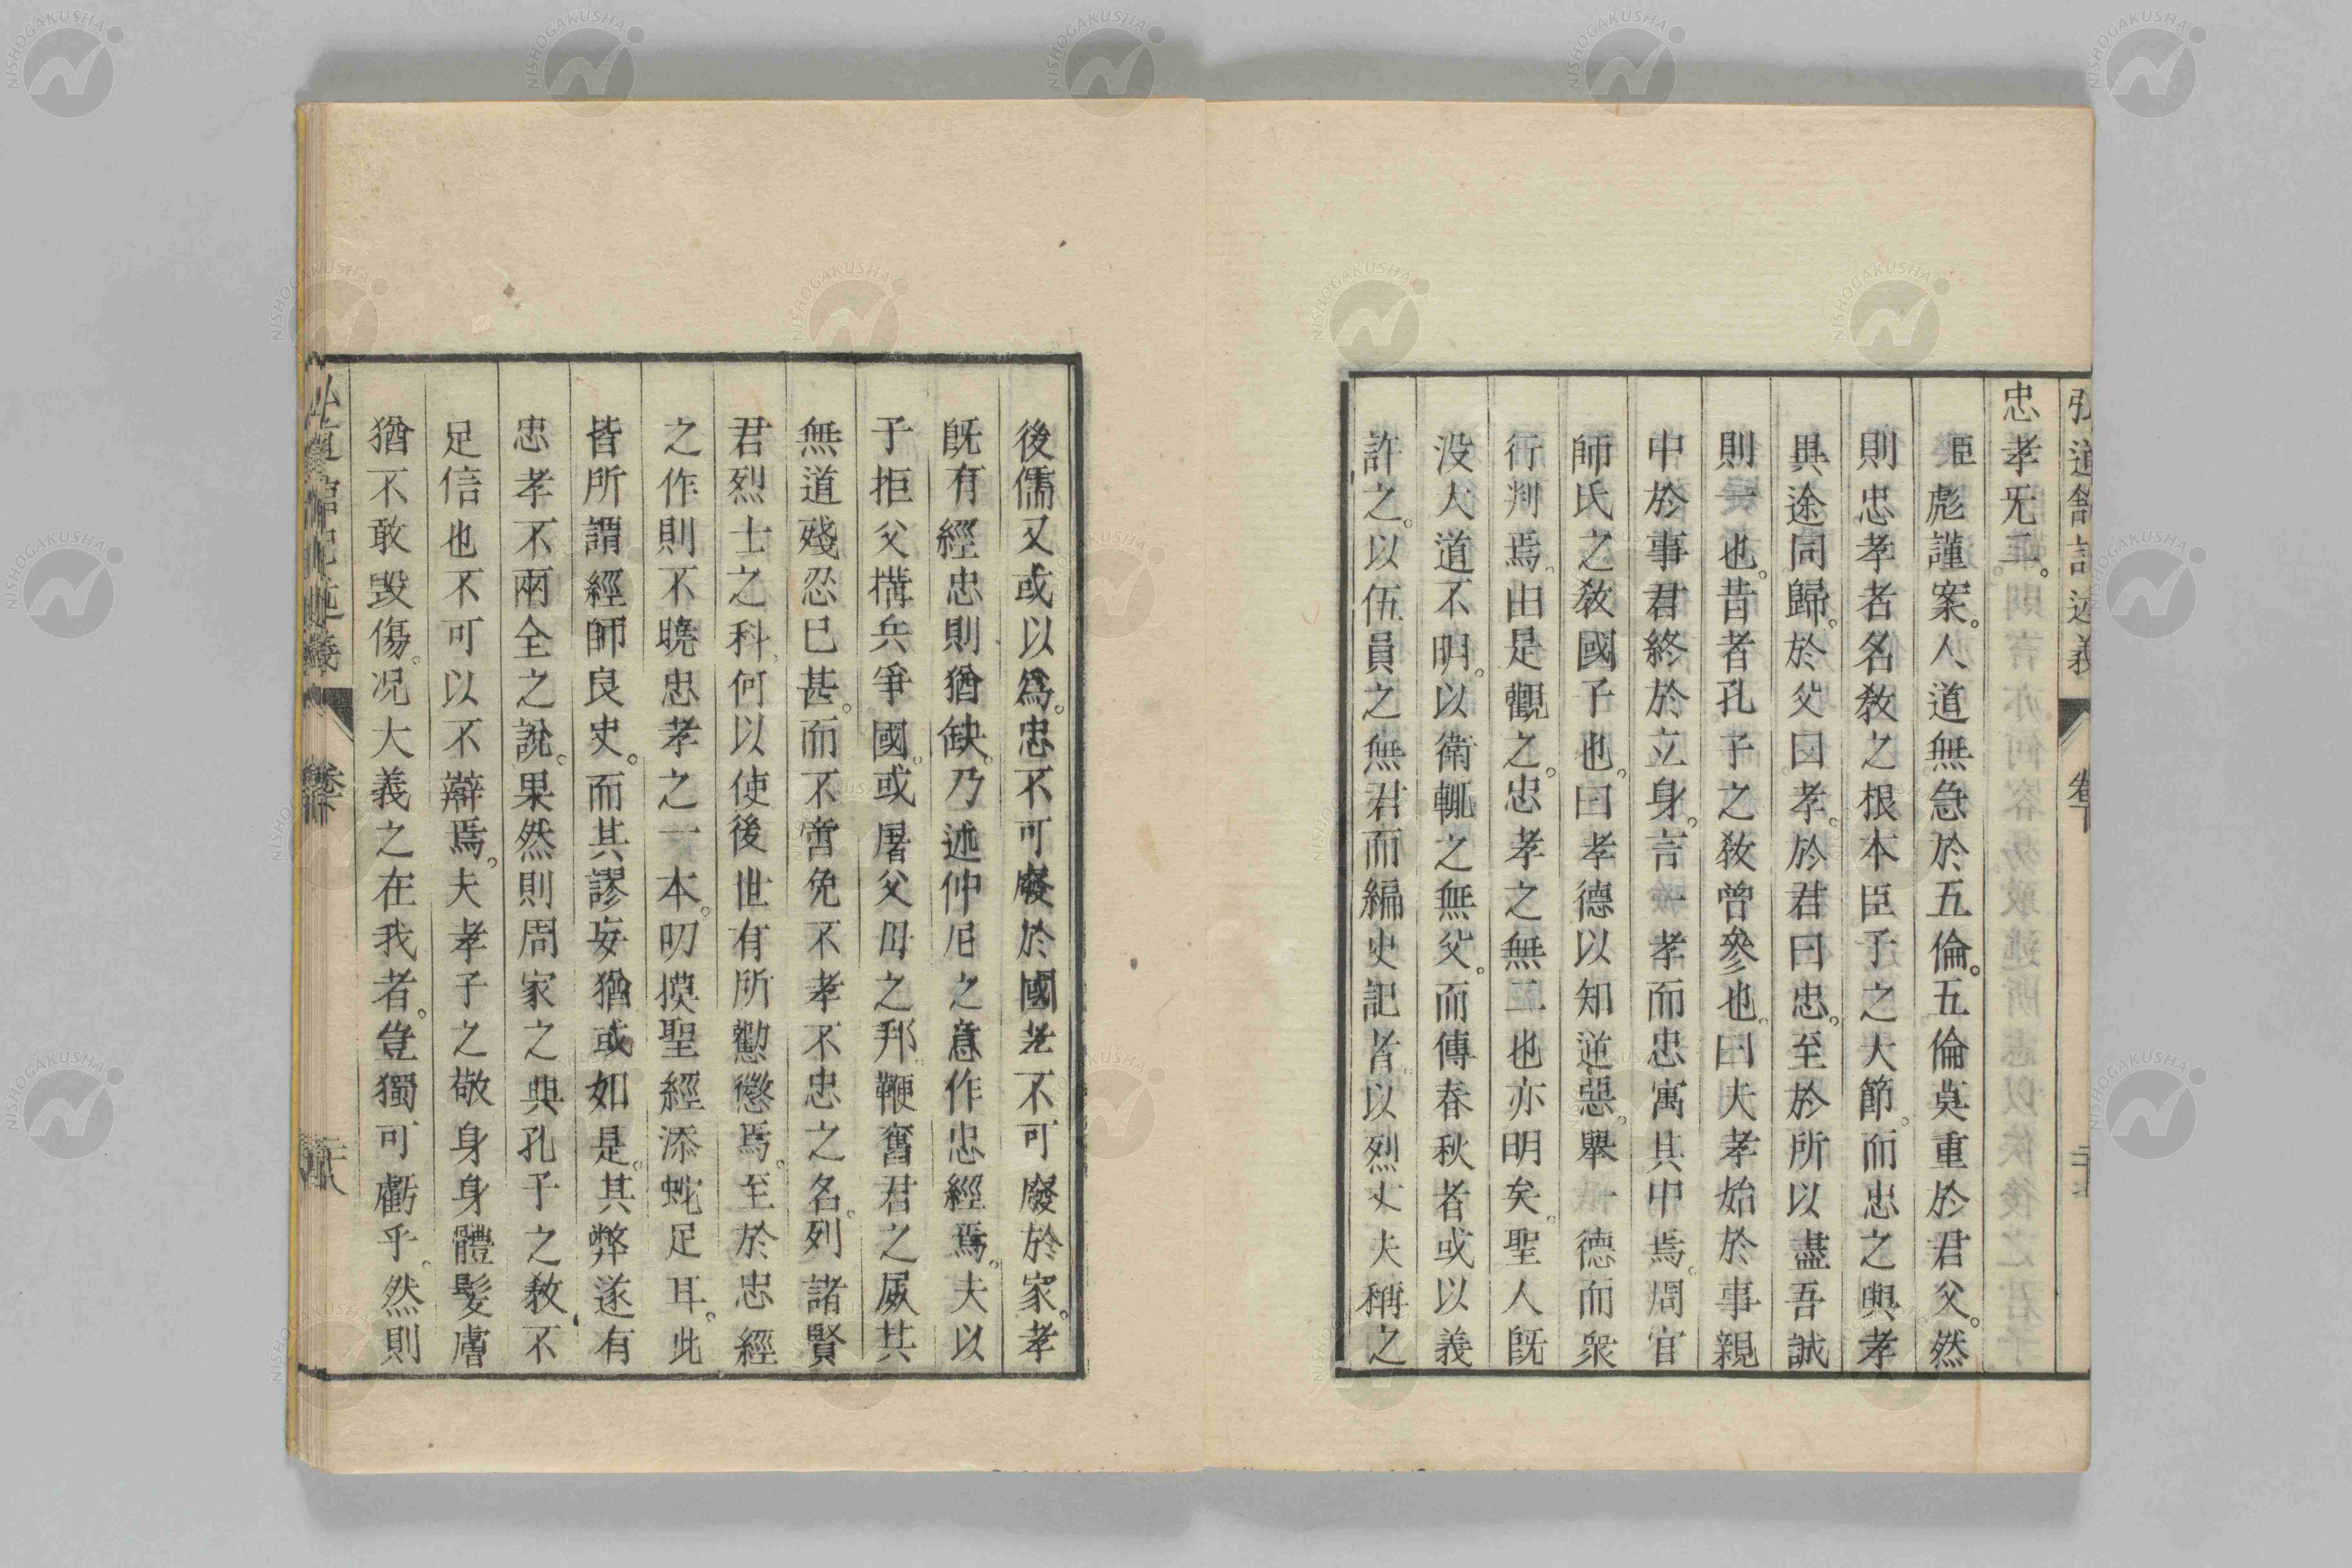 弘道館記述義 卷下
忠孝旡二。
臣彪謹案。人道無急於五倫。五倫莫重於君父。然
則忠孝者名敎之根本臣子之大節。而忠之與孝
異途同歸。於父曰孝。於君曰忠。至於所以盡吾誠
則一也。昔者孔子之敎曾參也。曰夫孝始於事親
中於事君終於立身。言一孝而忠寓其中焉。周官
師氏之敎國子也。曰孝德以知逆惡。舉一德而衆
行判焉。由是觀之。忠孝之無二也亦明矣。聖人旣
没大道不明。以衛輒之無父。而傳春秋者或以義
許之。以伍員之無君而編史記者。以烈丈夫稱之
後儒又或以爲。忠不可廢於國孝不可廢於家。孝
旣有經忠則猶缺。乃述仲尼之意作忠經焉。夫以
子拒父搆兵爭國。或屠父母之邦。鞭舊君之屍其
無道殘忍已甚。而不啻免不孝不忠之名。列諸賢
君烈士之科。何以使後世有所勸懲焉。至於忠經
之作則不曉忠孝之一本。叨摸聖經添蛇足耳。此
皆所謂經師良史。而其謬妄猶或如是。其弊遂有
忠孝不兩全之說。果然則周家之典孔子之敎。不
足信也不可以不辯焉。夫孝子之敬身身體髮膚
猶不敢毀傷。况大義之在我者。豈獨可虧乎。然則
弘道館記述義 卷下 二十八
NISHOGAKUSHA